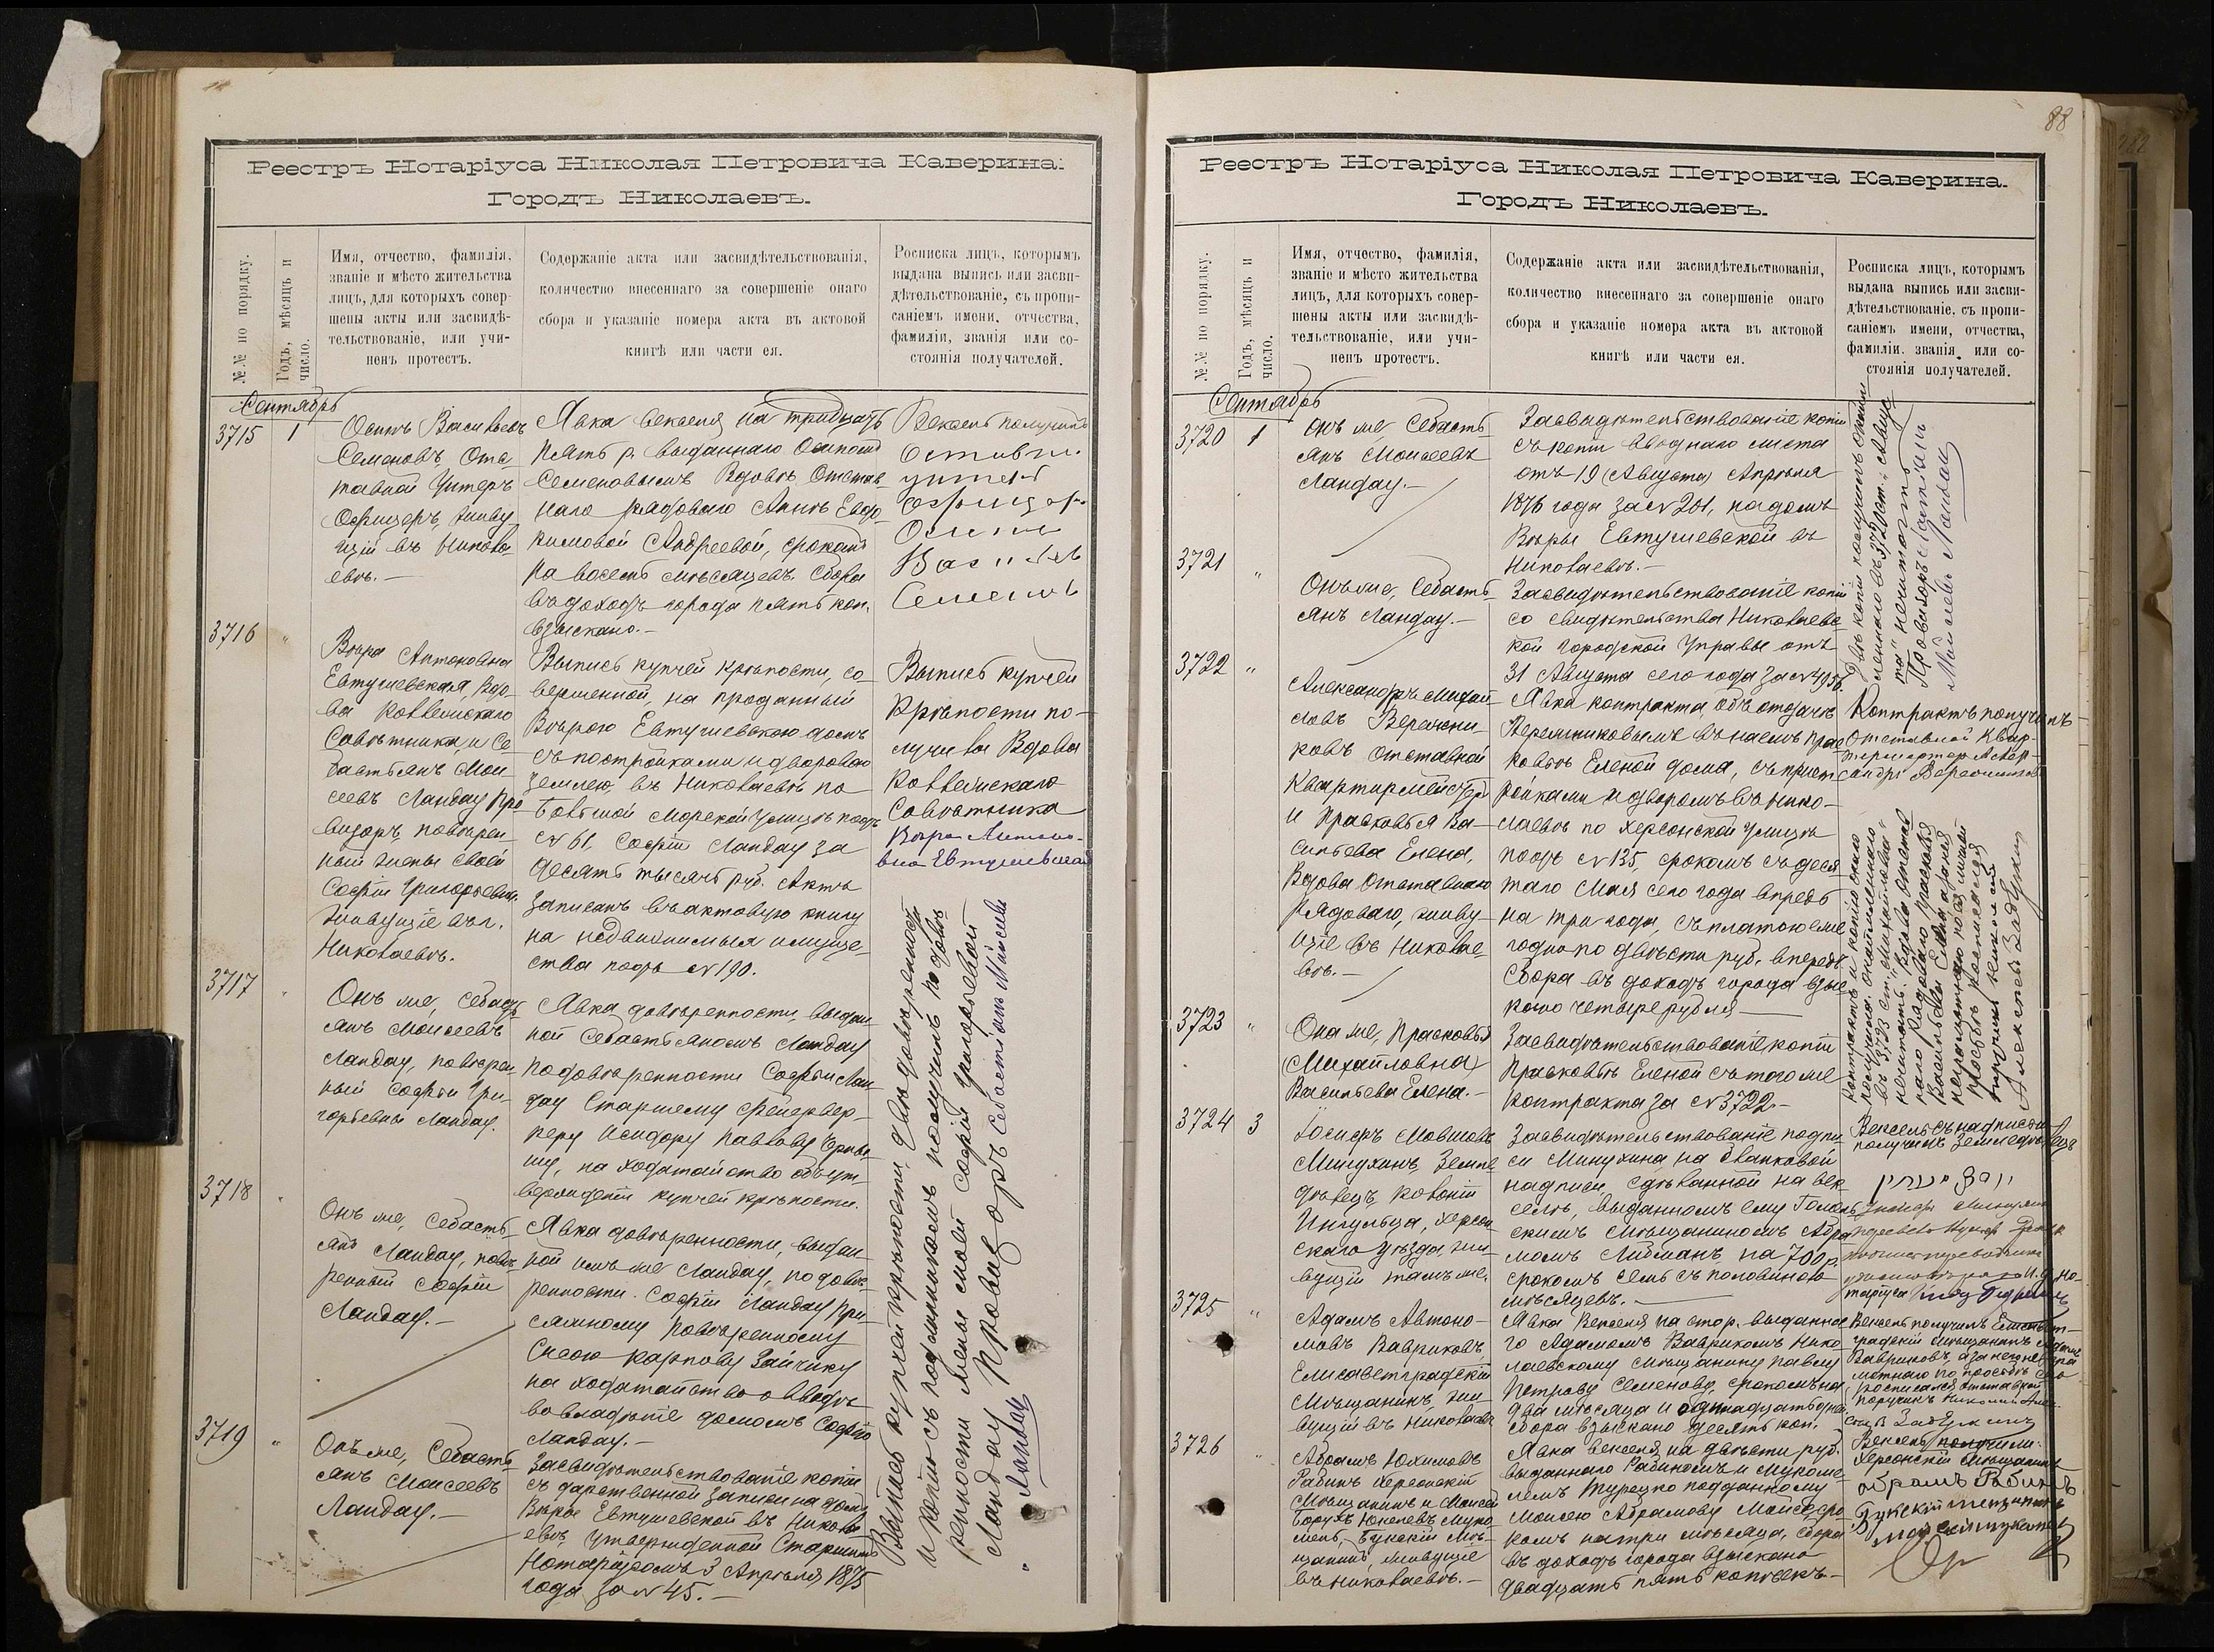 Реестръ Нотаріуса Николая Петровича Каверина.
Городъ Николаевъ.
№№ по порядку.
Годъ, мѣсяцъ и
число.
Имя, отчество, фамилія,
званіе и мѣсто жительства
лицъ, для которыхъ совер-
шены акты или засвидѣ-
тельствованіе, или учи-
ненъ протестъ.
Содержаніе акта или засвидѣтельствованія,
количество внесеннаго за совершеніе онаго
сбора и указаніе номера акта въ актовой
книгѣ или части ея.
Росписка лицъ, которымъ
выдана выпись или засви-
дѣтельствованіе, съ пропи-
саніемъ имени, отчества,
фамиліи, званія или со-
стоянія получателей.
Сентябрь
3715
1
Осипъ Васильевъ
Семеновъ, Отс-
тавной Унтеръ
Офицеръ, живу-
щій въ Никола-
евѣ.—
Явка векселя на тридцать
пять р. выданнаго Осипомъ
Семеновымъ Вдовѣ Отстав-
наго рядоваго Аннѣ Евдо-
кимовой Андреевой, срокомъ
на восемь мѣсяцевъ. Сбора
въ доходъ города пять коп.
взыскано.—
Вексель получилъ
Отставн.
унтеръ
офицеръ
Осипъ
Васильев
Семеновъ
3716
"
Вѣра Антоновна
Евтушевская, Вдо-
ва Коллежскаго
Совѣтника, и Се-
бастьянъ Мои-
сеевъ Ландау Про-
визоръ, повѣрен-
ный жены своей
Софіи Григорьевны,
живущіе въ г.
Николаевѣ.
Выпись купчей крѣпости, со-
вершенной, на проданный
Вѣрою Евтушевскою домъ
съ постройками и дворовою
землею, въ Николаевѣ по
Большой Морской улицѣ подъ
№ 61, Софіи Ландау за
десять тысячъ руб. Актъ
записанъ въ актовую книгу
на недвижимыя имуще-
ства подъ № 190.
Выпись купчей
Крѣпости по-
лучила Вдова
Коллежскаго
Совѣтника
Вѣра Антоно-
вна Евтушевская
3717
"
Онъ же, Себасть-
янъ Моисеевъ
Ландау, повѣрен-
ный Софьи Гри-
горьевны Ландау.
Явка довѣренности, выдан-
ной Себастьяномъ Ландау
по довѣренности Софьи Лан-
дау Старшему фейервер-
керу Исидору Павлову
на ходатайство объ ут-
вержденіи купчей крѣпости.
3718
"
Онъ же, Себасть-
янъ Ландау, повѣ-
ренный Софіи
Ландау.—
Явка довѣренности, выдан-
ной имъ же Ландау, по довѣ-
ренности Софіи Ландау при-
сяжному повѣренному
Карпову Зайчику
на ходатайство о вводѣ
во владѣніе домомъ Софію
Ландау.—
3719
"
Онъ же, Себасть-
янъ Моисеевъ
Ландау.—
Засвидѣтельствованіе копіи
съ дарственной записи на домъ
Вѣрѣ Евтушевской въ Никола-
евѣ, утвержденной Старшимъ
Нотаріусомъ 3 Апрѣля 1875
года за № 45.—
Выпись купчей крѣпости, двѣ довѣренности
и копію съ подлинникомъ получилъ по довѣ-
ренности жены моей Софіи Григорьевой
Ландау Провизоръ Себастіанъ Мойсеевъ
Ландау
88
Реестръ Нотаріуса Николая Петровича Каверина.
Городъ Николаевъ.
№№ по порядку.
Годъ, мѣсяцъ и
число.
Имя, отчество, фамилія,
званіе и мѣсто жительства
лицъ, для которыхъ совер-
шены акты или засвидѣ-
тельствованіе, или учи-
ненъ протестъ.
Содержаніе акта или засвидѣтельствованія,
количество внесеннаго за совершеніе онаго
сбора и указаніе номера акта въ актовой
книгѣ или части ея.
Росписка лицъ, которымъ
выдана выпись или засви-
дѣтельствованіе, съ пропи-
саніемъ имени, отчества,
фамиліи, званія, или со-
стоянія получателей.
Сентябрь
3720
1
Онъ же, Себасть-
янъ Моисеевъ
Ландау.—
Засвидѣтельствованіе копіи
съ копіи вводнаго листа
отъ 19 (Августа) Апрѣля
1876 года за № 201, на домъ
Вѣры Евтушевской въ
Николаевѣ.—
3721
"
Онъ же, Себасть-
янъ Ландау.—
Засвидѣтельствованіе копіи
со свидѣтельства Николаевс-
кой Городской Управы отъ
31 Августа сего года за № 4956.
Двѣ копіи получилъ
въ 3720 ст. „Авгус-
та" не читать
Провизоръ Себастіанъ
Мойсеевъ Ландау
3722
"
Александръ Михай-
ловъ Верещни-
ковъ отставной
Квартирмейстеръ
и Прасковья Ва-
сильева Елена,
Вдова отставнаго
рядоваго, живу-
щіе въ Николае-
вѣ.—
Явка контракта, объ отдачѣ
Верещниковымъ въ наемъ Прас-
ковьѣ Еленой дома, съ прист-
ройками и дворомъ въ Нико-
лаевѣ по Херсонской улицѣ
подъ № 135, срокомъ съ деся-
таго Мая сего года впредь
на три года, съ платою еже-
годно по двѣсти руб. впередъ.
Сбора въ доходъ города взыс-
кано четыре рубля—
Контрактъ получилъ
Отставной Квар-
3723
"
Она же, Прасковья
(Михайловна)
Васильева Елена.—
Засвидѣтельствованіе копіи
Прасковьѣ Еленой съ того же
контракта за № 3722.—
Контрактъ и копію онаго
получила
въ 3723 ст. „Михайловна"
не читать. Вдова отстав-
наго рядоваго Прасковья
Васильева Елена а за нея
неграмотную по личной
просьбѣ росписался
поручикъ Николай
Алексѣевъ
3724
3
Іосифъ Мовшовъ
Минухинъ, Земле-
дѣлецъ колоніи
Ингульца, Херсон-
скаго уѣзда, жи-
вущій тамъ же.
Засвидѣтельствованіе подпи-
си Минухина на бланковой
надписи сдѣланной на век-
селѣ, выданномъ ему
мѣщаниномъ Абра-
момъ Либманъ на 700 р.
срокомъ семь съ половиною
мѣсяцевъ.—
Вексель съ надписью
получилъ Земледѣлецъ
3725
"
Адамъ Автоно-
мовъ Вавриковъ,
Елисаветградскій
Мѣщанинъ, жи-
вущій въ Николаевѣ
Явка векселя на стор. выданна-
го Адамомъ Вавриковъ Нико-
лаевскому мѣщанину Павлу
Петрову Семенову, срокомъ на
два мѣсяца и одинадцать дней
сбора взыскано десять коп.
Вексель получилъ Елисавет-
градскій мѣщанинъ Адамъ
Вавриковъ, а за него негра-
мотнаго по просьбѣ его
росписался отставной
поручикъ Николай Алек-
3726
"
Абрамъ Юхимовъ
Рабинъ Херсонскій
Мѣщанинъ и Моисей
Борухъ Муко-
мель, Бугскій Мѣ-
щанинъ, живущіе
въ Николаевѣ.—
Явка векселя на двѣсти руб.
выданнаго Рабиномъ и Мукоме-
лемъ Турецко подданному
Моисею Абрамову сро-
комъ на три мѣсяца, сбора
въ доходъ города взыскано
двадцать пять копѣекъ—
Вексель получили:
Херсонскій мѣщанинъ
Абрамъ Рабинъ